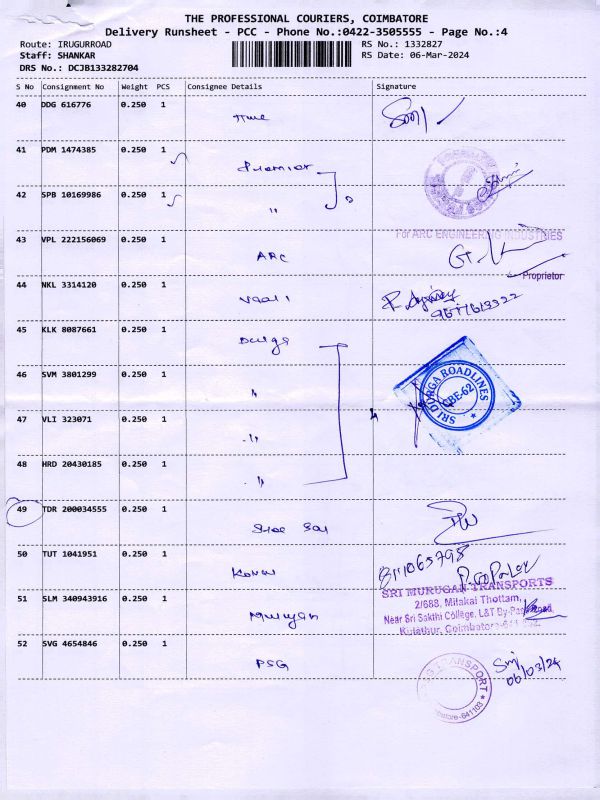 THE PROFESSIONAL COURIERS, COIMBATORE
Delivery Runsheet - PCC - Phone No.:0422-3505555 - Page No.:4
Route: IRUGURROAD
Staff: SHANKAR
DRS No.: DCJB133282704
RS No.: 1332827
RS Date: 06-Mar-2024
S No Consignment No Weight PCS Consignee Details Signature
40 DDG 616776 0.250 1
41 PDM 1474385 0.250 1 Premier
42 SPB 10169986 0.250 1 "
43 VPL 222156069 0.250 1 ARC
For ARC ENGINEERING INDUSTRIES
Proprietor
44 NKL 3314120 0.250 1
45 KLK 8087661 0.250 1 Durga
46 SVM 3801299 0.250 1 "
47 VLI 323071 0.250 1 "
48 HRD 20430185 0.250 1 "
4
SRI DURGA ROADLINES
CBE-62
49 TDR 200034555 0.250 1 Sree Sai
50 TUT 1041951 0.250 1
P. GOPALOV
51 SLM 340943916 0.250 1 Murugan
SRI MURUGAN TRANSPORTS
2/688, Mitakai Thottam,
Near Sri Sakthi College, L&T By-Pass Road,
Kulathur, Coimbatore-641
52 SVG 4654846 0.250 1 PSG
PSG TRANSPORT
Coimbatore-641103
06/03/24